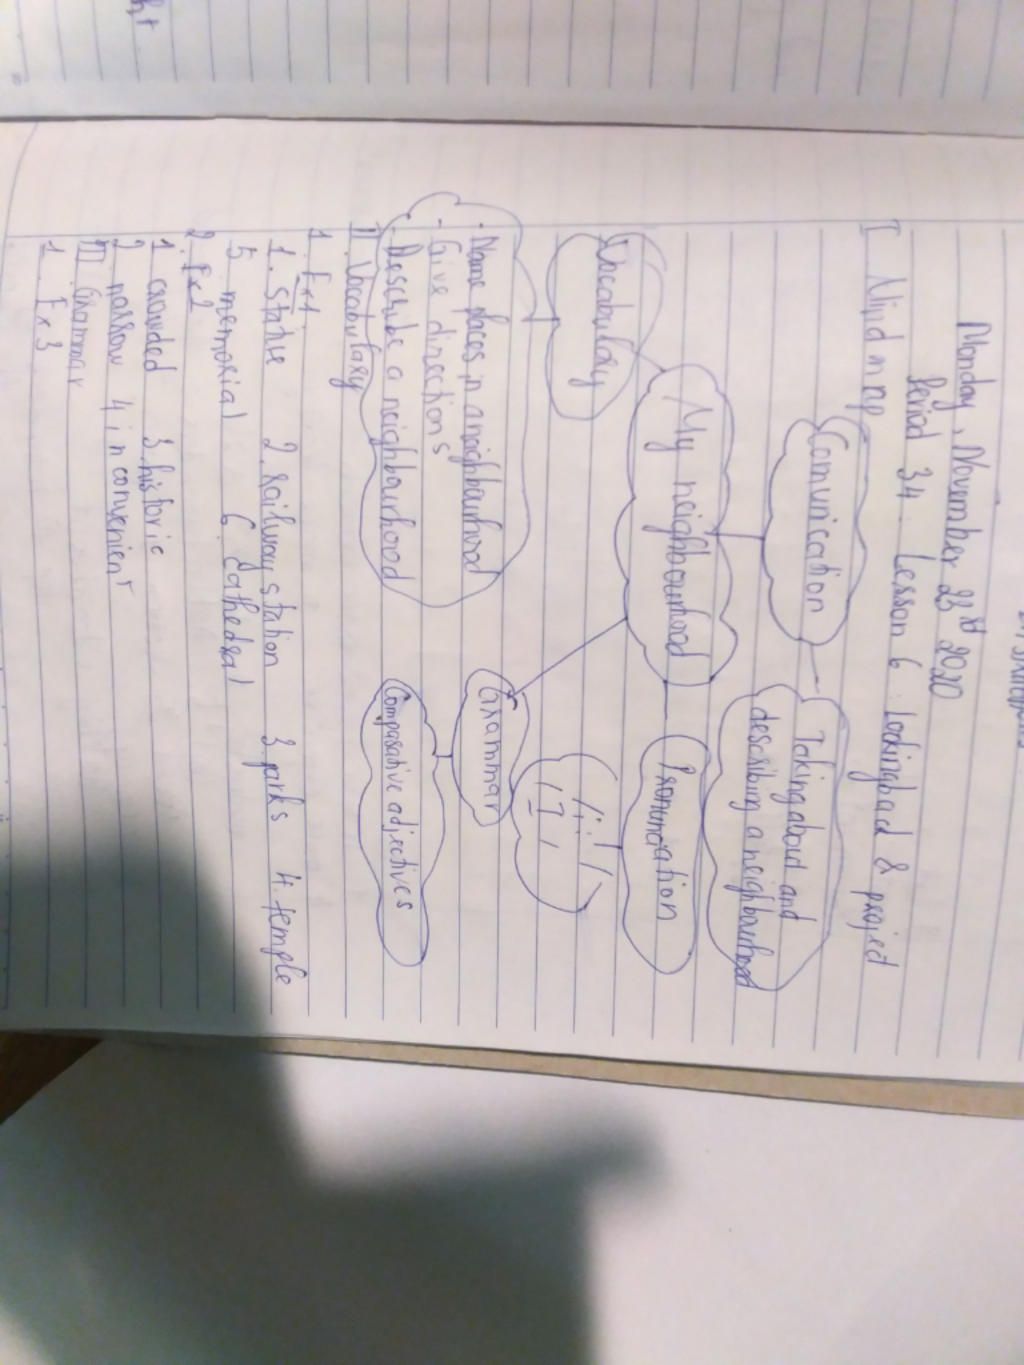 Monday, November 23rd 2020
Period 34 Lesson 6 : Lookingback & project
I Mind map
Communication
Takingabout and
describing a neighbourhood
My neighbourhood
Pronunciation
/i:/
/I/
Vocabulary
Grammar
Comparative adjectives
. Name places in a neighbourhood
. Give directions
. Describe a neighbourhood
II. Vocabulary
1. Ex1
1. statue 2. railway station 3 parks 4. temple
5 memorial 6. cathedral
2. Ex2
1 crowded 3. historic
2 narrow 4, inconvenient
III Grammar
1. Ex3